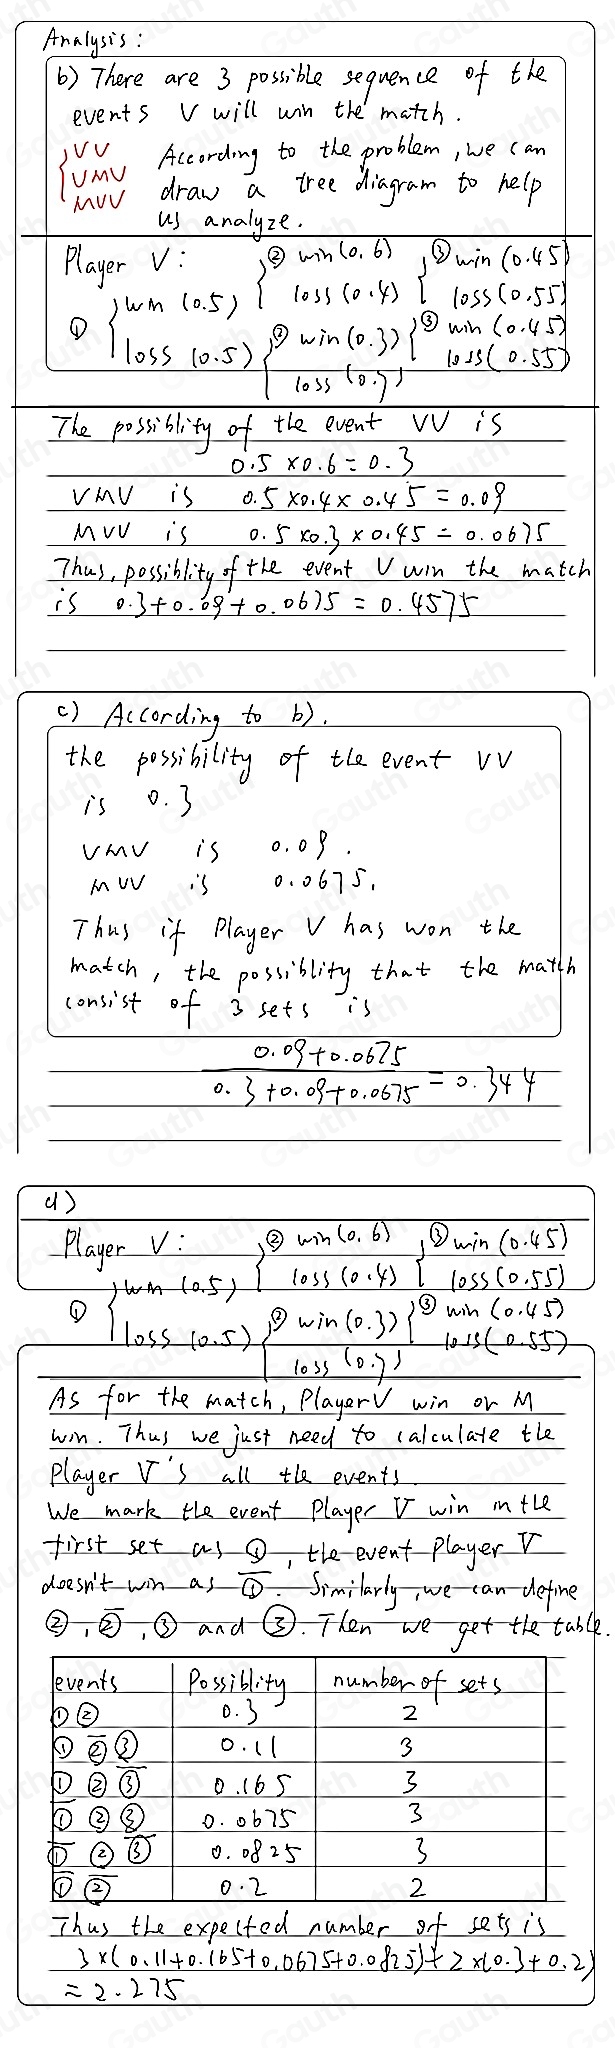 Analysis:
b) There are 3 possible sequence of the
events V will win the match.
VV
VMV
MVV
According to the problem, we can
draw a tree diagram to help
us analyze.
Player V:
① win (0.5)
loss (0.5)
② win (0.6)
loss (0.4)
③ win (0.45)
loss (0.55)
② win (0.3)
loss (0.7)
③ win (0.45)
loss (0.55)
The possiblity of the event VV is
0.5 x 0.6 = 0.3
VMV is 0.5 x 0.4 x 0.45 = 0.09
MVV is 0.5 x 0.3 x 0.45 = 0.0675
Thus, possiblity of the event V win the match
is 0.3+0.09+0.0675 = 0.4575
c) According to b).
the possibility of the event VV
is 0.3
VMV is 0.09.
MVV is 0.0675.
Thus if Player V has won the
match, the possiblity that the match
consist of 3 sets is
0.09+0.0675
0.3+0.09+0.0675 = 0.344
d)
Player V:
① win (0.5)
loss (0.5)
② win (0.6)
loss (0.4)
③ win (0.45)
loss (0.55)
② win (0.3)
loss (0.7)
③ win (0.45)
loss (0.55)
As for the match, Player V win or M
win. Thus we just need to calculate the
Player V's all the events
We mark the event Player V win in the
first set as ①, the event Player V
doesn't win as ①̅. Similarly, we can define
②, ②̅, ③ and ③̅. Then we get the table.
events Possiblity number of sets
① ② 0.3 2
① ②̅ ③ 0.11 3
① ② ③̅ 0.165 3
①̅ ② ③ 0.0675 3
①̅ ② ③̅ 0.0825 3
①̅ ②̅ 0.2 2
Thus the expected number of sets is
3x(0.11+0.165+0.0675+0.0825)+2x(0.3+0.2)
= 2.275